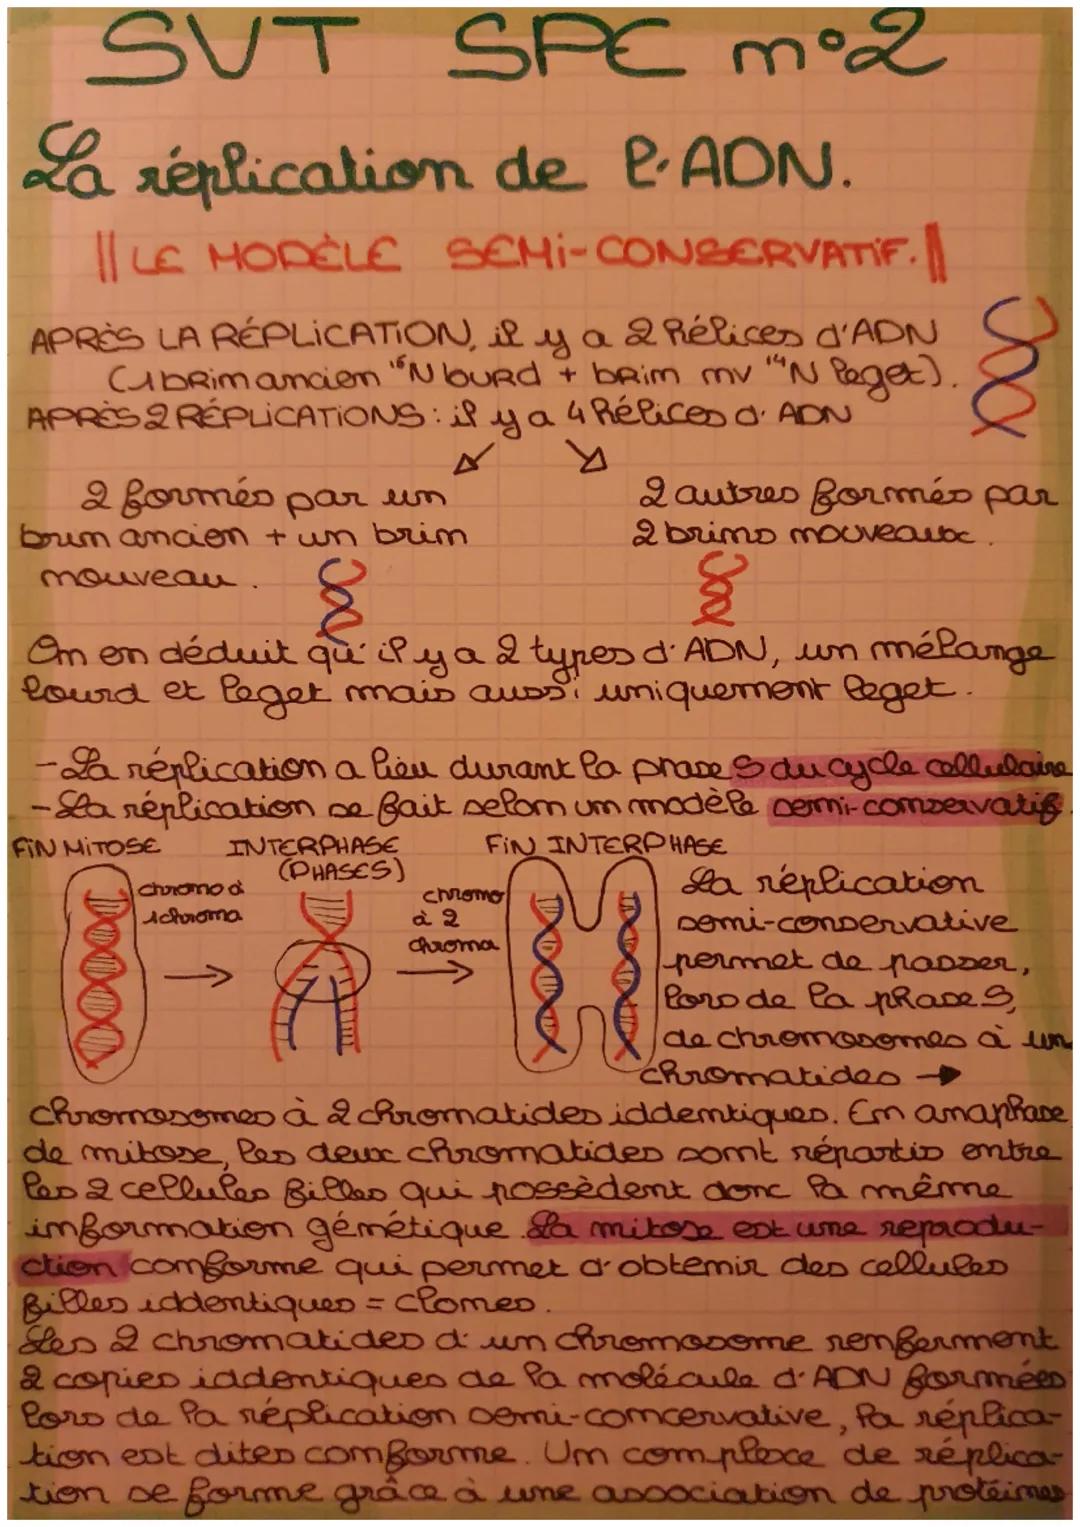 SVT SPE n°2
La réplication de l'ADN.
|| LE MODÈLE SEMi-CONSERVATiF. ||
APRÈS LA RÉPLiCATiON, il y a 2 hélices d'ADN
(1 brin ancien "¹⁵N lourd + brin nv "¹⁴N leget).
APRÈS 2 RÉPLiCATiONS : il y a 4 hélices d'ADN
2 formés par un
brin ancien + un brin
nouveau.
2 autres formés par
2 brins nouveaux.
On en déduit qu'il y a 2 types d'ADN, un mélange
lourd et leget mais aussi uniquement leget.
- La réplication a lieu durant la phase S du cycle cellulaire
- La réplication se fait selon un modèle semi-conservatif.
FiN MiTOSE
INTERPHASE
(PHASES)
FiN INTERPHASE
chromo à
1 chroma
chromo
à 2
chroma
La réplication
semi-conservative
permet de passer,
lors de la phase S,
de chromosomes à un
chromatides →
chromosomes à 2 chromatides iddentiques. En anaphase
de mitose, les deux chromatides sont répartis entre
les 2 cellules filles qui possèdent donc la même
information génétique. La mitose est une reprodu-
ction conforme qui permet d'obtenir des cellules
filles iddentiques = clones.
Les 2 chromatides d'un chromosome renferment
2 copies iddentiques de la molécule d'ADN formées
lors de la réplication semi-concervative, la réplica-
tion est dites conforme. Un complexe de réplica-
tion se forme grâce à une association de protéines